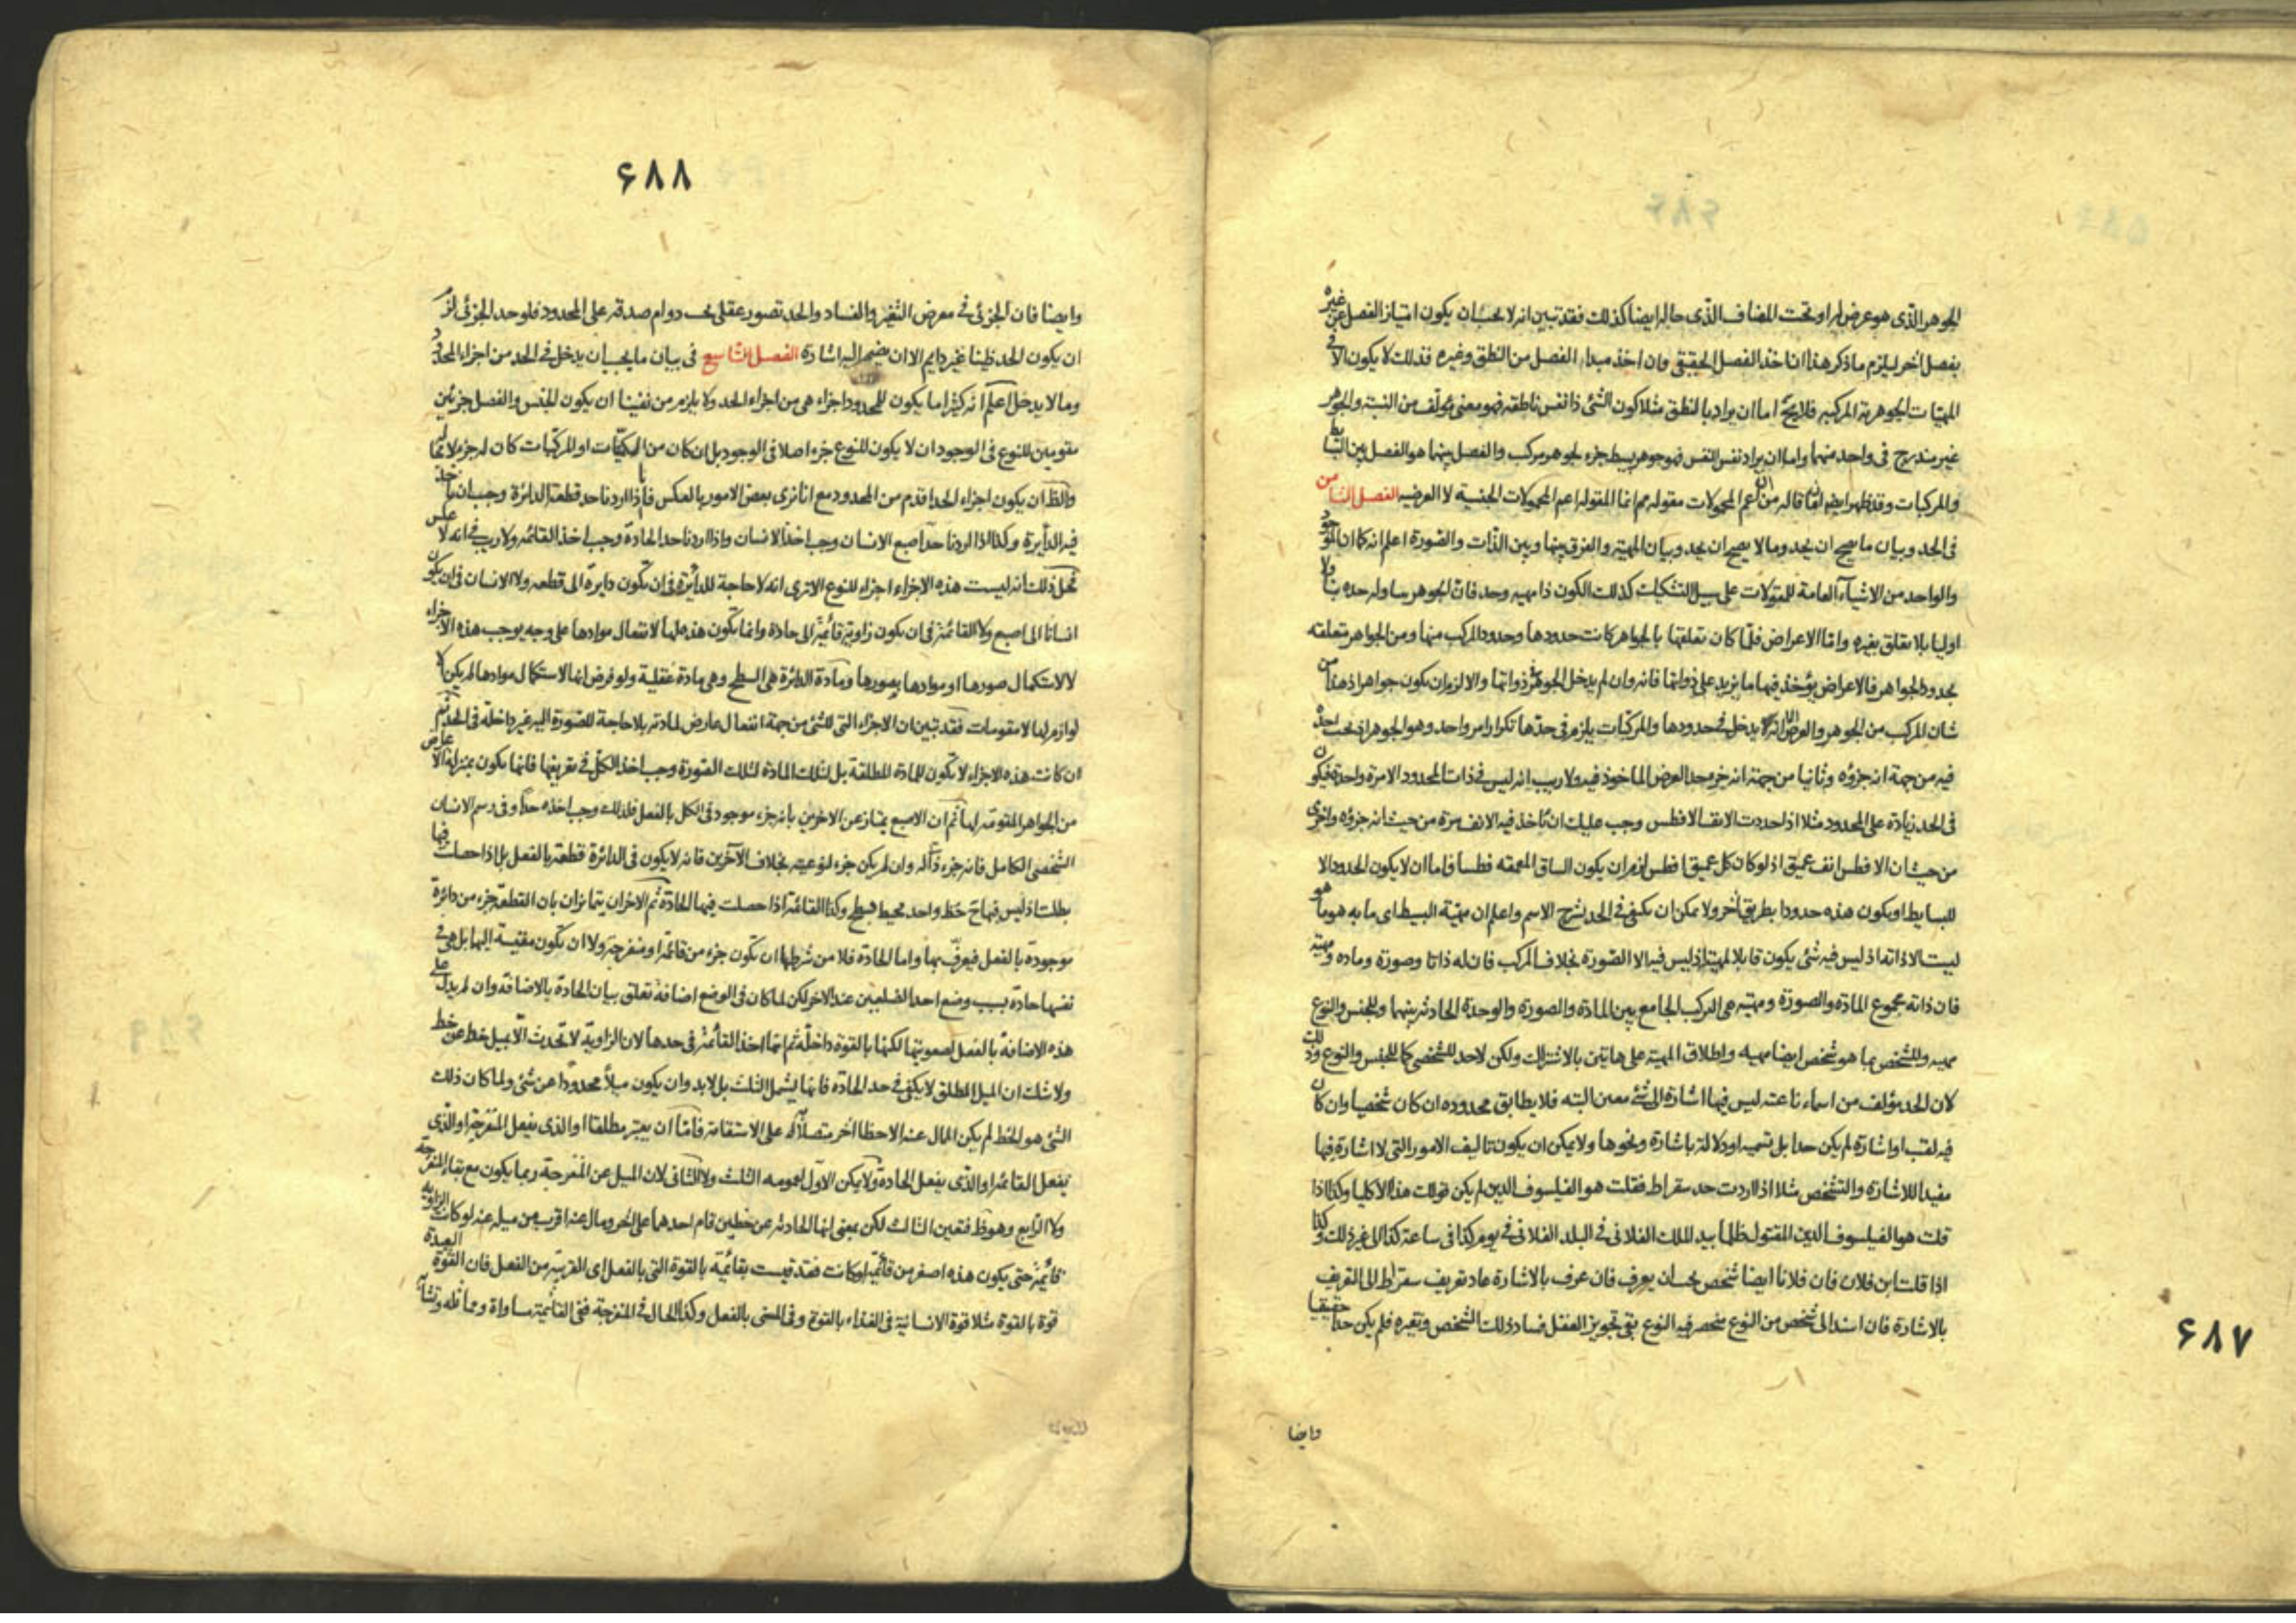 الجوهر الذى هو عرض له او تحت المضاف الذى حاله ايضا كذلك فقد تبين انه لا يحسبان يكون امتياز الفصل عن غيره
بفصل اخر ليلزم ماذكر هذا اذا اخذ الفصل الحقيقى وان اخذ مبدا الفصل من النطق وغيره فذلك لا يكون الا فى
المهيات الجوهرية المركبه فلا يخ اما ان يراد بالنطق مثلا كون الشئ ذا نفس ناطقه فهو معنى مؤلف من النسبة والجوهر
غير مندرج فى واحد منهما واما ان يراد نفس النفس فهو جوهر بسيط جزء لجوهر مركب والفصل بينهما هو الفصل بين البسايط
والمركبات وقد ظهر ايضا ان ما قاله من ان اعم المحمولات مقوله مم انما المقوله اعم المحمولات الجنسية لا العرضيه الفصل الثامن
فى الحد وبيان ما يصح ان يحد وما لا يصح ان يحد وبيان المهية والفرق بينها وبين الذات والصورة اعلم انه كما ان الموجود
والواحد من الاشياء العامة للمقولات على سبيل التشكيك كذلك الكون ذا مهيه وحد فان الجوهر يتناوله حده تناولا
اوليا بلا تعلق بغيره واما الاعراض فلما كان تعلقها بالجواهر كانت حدودها وحدود المركب منها ومن الجواهر متعلقه
بحدود الجواهر فالاعراض يؤخذ فيها ما يزيد على ذواتها فانه وان لم يدخل الجوهر فى ذواتها والا لزم ان يكون جواهر اذ هذا من
شان المركب من الجوهر والعرض الا انه يدخل فى حدودها والمركبات يلزم فى حدها تكرار امر واحد وهو الجوهر اذ يجب اخذه
فيه من جهة انه جزؤه وثانيا من جهة انه جزء حد العرض الماخوذ فيه ولا ريب انه ليس فى ذات المحدود الا مرة واحدة فيكون
فى الحد زيادة على المحدود مثلا اذا حددت الانف الافطس وجب عليك ان تاخذ فيه الانف مرة من حيث انه جزؤه واخرى
من حيث ان الافطس انف عميق اذ لو كان كل عميق افطس لزم ان يكون الساق المعمقه فطسا فاما ان لا يكون الحدود الا
للبسايط او يكون هذه حدودا بطريق اخر ولا يمكن ان يكتفى فى الحد بشرح الاسم واعلم ان مهية البسيط اى ما به هو ما هو
ليست الا ذاته اذ ليس فيه شئ يكون قابلا لمهيته اذ ليس فيه الا الصورة بخلاف المركب فان له ذاتا وصورة وماده ومهية
فان ذاته مجموع المادة والصورة ومهيته هى التركيب الجامع بين المادة والصورة والوحدة الحادثه بينهما وللجنس والنوع
مهيه وللشخص بما هو شخص ايضا مهيه واطلاق المهية على هاتين بالاشتراك ولكن لا حد للشخصى كما للجنس والنوع وذلك
لان الحد مؤلف من اسماء ناعته ليس فيها اشارة الى شئ معين البته فلا يطابق محدوده ان كان شخصيا وان كان
فيه لقب او اشارة لم يكن حدا بل تسميه او دلالة باشارة ونحوها ولا يمكن ان يكون تاليف الامور التى لا اشارة فيها
مفيدا للاشارة والتشخص مثلا اذا اردت حد سقراط فقلت هو الفيلسوف الدين لم يكن قولك هذا الا كليا وكذا اذا
قلت هو الفيلسوف الدين المقتول ظلما بيد الملك الفلانى فى البلد الفلانى فى يوم كذا فى ساعة كذا الى غير ذلك وكذا
اذا قلت ابن فلان فان فلانا ايضا شخص يحسبان يعرف فان عرف بالاشارة عاد تعريف سقراط الى التعريف
بالاشارة فان اسند الى شخص من النوع منحصر فيه النوع بقى تجويز العقل فساد ذلك الشخص وتغيره فلم يكن حدا حقيقيا
وايضا
۶۸۷
۶۸۸
وايضا فان الجزئى فى معرض التغير والفساد والحد تصور عقلى يجب دوام صدقه على المحدود فلو حد الجزئى لزم
ان يكون الحد ظنيا غير دايم الا ان يضم اليه اشارة الفصل التاسع فى بيان ما يجب ان يدخل فى الحد من اجزاء المحدود
وما لا يدخل اعلم انه كثيرا ما يكون للمحدود اجزاء هى من اجزاء الحد ولا يلزم من نفينا ان يكون الجنس والفصل جزئين
مقومين للنوع فى الوجود ان لا يكون للنوع جزء اصلا فى الوجود بل ان كان من الكميات او المركبات كان له جزء لا محالة
والظ ان يكون اجزاء الحد اقدم من المحدود مع انا نرى بعض الامور بالعكس فانا اذا اردنا حد قطعة الدائرة وجب ان ناخذ
فيه الدائرة وكذا اذا اردنا حد اصبع الانسان وجب اخذ الانسان واذا اردنا حد الحادة وجب اخذ القائمه ولا ريب فى انه لا عكس
ذلك انه ليست هذه الاجزاء اجزاء للنوع الا ترى انه لا حاجة للدائرة فى ان تكون دايرة الى قطعه ولا الانسان فى ان يكون
انسانا الى اصبع ولا القائمة فى ان يكون زاوية قائمة الى حادة وانما يكون هذه لها لانفعال موادها على وجه يوجب هذه الاجزاء
لا لاستكمال صورها او موادها بصورها ومادة الدائرة هى السطح وهى مادة عقلية ولو فرض انها لاستكمال موادها لم يكن الا
لوازم لها لا مقومات فقد تبين ان الاجزاء التى للشئ من جهة انفعال عارض لمادته بلا حاجة للصورة اليه غير داخلة فى الحد ثم
ان كانت هذه الاجزاء لا يكون للمادة المطلقة بل لتلك المادة لتلك الصورة وجب اخذ الكل فى تعريفها فانها يكون بمنزلة الاعراض
من الجواهر المتقومة لها ثم ان الاصبع يمتاز عن الاخرين بانه جزء موجود فى الكل بالفعل فلذلك وجب اخذه حدا وفى رسم الانسان
الشخصى الكامل فانه جزء ذاته له وان لم يكن جزء لنوعيته بخلاف الآخرين فانه لا يكون فى الدائرة قطعة بالفعل بل اذا حصلت فيها
بطلت اذ ليس فيها ح خط واحد محيط بسطح وكذا القائمة اذا حصلت فيها الحادة ثم الاخران يتمايزان بان القطعة جزء من دائرة
موجودة بالفعل فيعرف بها واما الحادة فلا من شرطها ان تكون جزء من قائمة او منفرجة ولا ان تكون مقيسة اليها بل هى فى
نفسها حادة بسبب وضع احد الضلعين عند الاخر لكن لما كان فى الوضع اضافة تعلق بيان الحادة بالاضافة وان لم يدل على
هذه الاضافة بالفعل لصعوبتها لكنها بالقوة داخلة ثم انما اخذ القائمة فى حدها لان الزاوية لا تحدث الا بميل خط عن خط
ولا شك ان الميل المطلق لا يكفى فى حد الحادة فانها يشمل الثلث بل لا بد وان يكون ميلا محدودا عن شئ ولما كان ذلك
الشئ هو الخط لم يكن المال عنه الا خطا اخر متصلا به على الاستقامة فاما ان يعتبر مطلقا او الذى يفعل المنفرجة او الذى
يفعل القائمة او الذى يفعل الحادة ولا يمكن الاول لعمومه الثلث ولا الثانى لان الميل عن المنفرجة ربما يكون مع بقاء المنفرجة
ولا الرابع وهو ظ فتعين الثالث لكن بمعنى انها الحادثه عن خطين قام احدهما على الاخر ومال عنه اقرب من ميله عنه لو كانت الزاوية
قائمة حتى يكون هذه اصغر من قائمة لو كانت فقد قيست بقائمة بالقوة التى بالفعل اى القريبة من الفعل فان القوة البعيدة
قوة بالقوة مثلا قوة الانسانية فى الغذاء بالقوة وفى المنى بالفعل وكذا الحال فى المنفرجة ففى القائمة مساواة ومماثله وتشابه